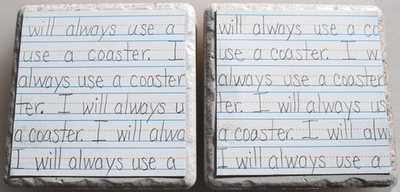 will always use a
use a coaster. I
always use a coaster
ter. I will always u
a coaster. I will alwa
I will always use a
will always use a co
use a coaster. I w
always use a coaster
ter. I will always us
a coaster. I will alw
I will always use a